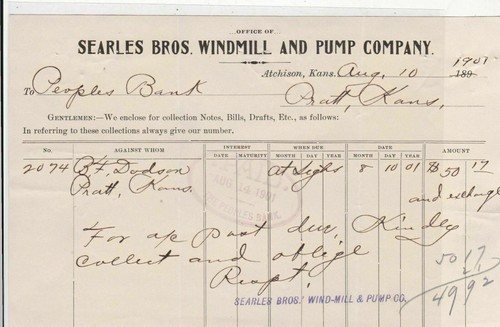 OFFICE OF
SEARLES BROS. WINDMILL AND PUMP COMPANY.
Atchison, Kans. Aug. 10 1901 189
To Peoples Bank
Pratt, Kans.
GENTLEMEN:—We enclose for collection Notes, Bills, Drafts, Etc., as follows:
In referring to these collections always give our number.
No. AGAINST WHOM INTEREST WHEN DUE DATE AMOUNT
DATE MATURITY MONTH DAY YEAR MONTH DAY YEAR
2074 B.F. Dodson at Sight 8 10 01 $50 17
Pratt, Kans. and exchange
PAID
AUG 14 1901
PEOPLES BANK
For a/c past due, Kindly
collect and oblige
Respt,
SEARLES BROS.' WIND-MILL & PUMP CO.
5017
4992